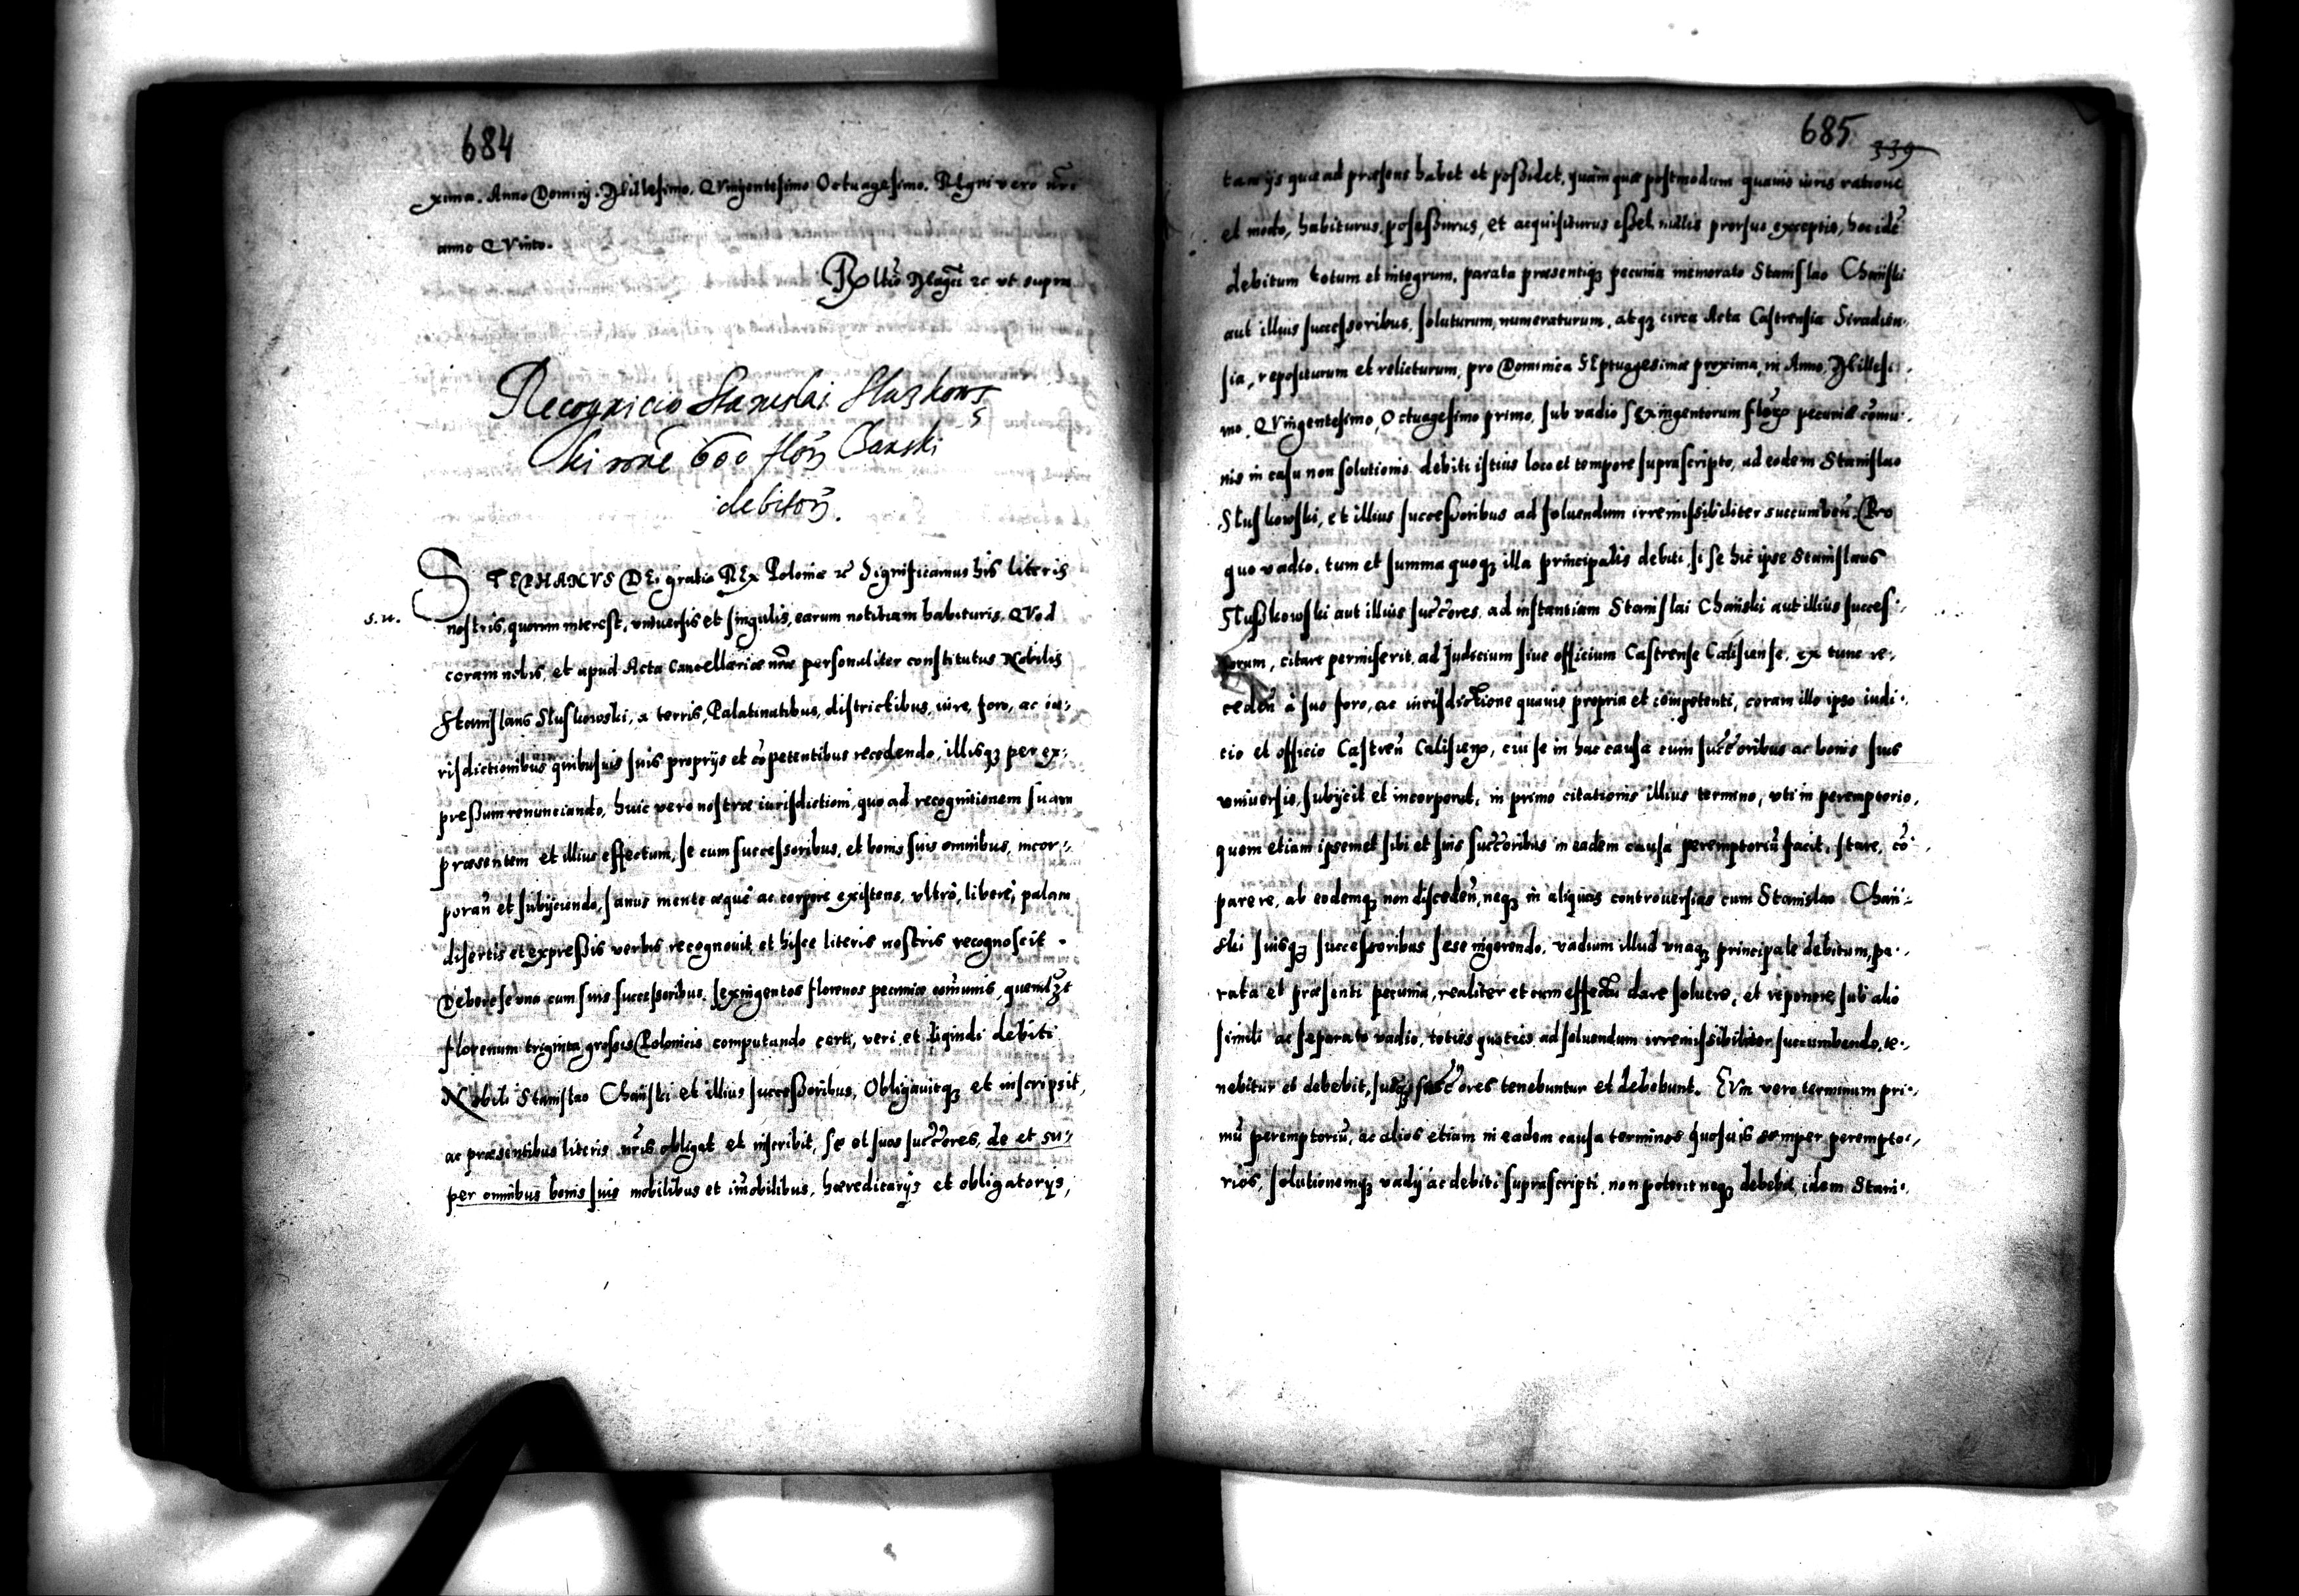 684
xima. Anno Dominj Millesimo. QVingentesimo Octuagesimo. REgni vero nrĩ
anno QVinto.
Rltĩo Magcĩ zc ut supra
Recognicio Stanislai Sluzkows
ki rõne 600 florẽ Chanski
debitorẽ.
STEPHANVS DEi gratia REx Poloniæ zc Significamus his literis
s. n.
nostris, quorum interest, vniuersis et singulis, earum notitiam habituris. QVod
coram nobis, et apud Acta Cancellariæ nr̃æ personaliter constitutus Nobilis
Stanislaus Sluskowski, a terris, Palatinatibus, districtibus, iure, foro, ac iu-
risdictionibus quibusuis suis proprijs et cõpetentibus recedendo, illisqz per ex-
pressum renunciando, huic vero nostræ iurisdictioni, quo ad recognitionem suam
præsentem et illius effectum, se cum successoribus, et bonis suis omnibus, incor-
porañ et subijciendo, sanus mente æque ac corpore existens, vltro, libere, palam
disertis et expressis verbis recognouit et hisce literis nostris recognoscit.
Debere se vna cum suis successoribus. sexingentos florenos pecuniæ com̃unis, quemlzt
florenum triginta grossis Polonicis computando certi, veri et liquidi debiti
Nobili Stanislao Chański et illius successoribus. Obligauitqz et inscripsit,
ac præsentibus literis nr̃is obligat et inscribit, se et suos succ̃ores, de et su-
per omnibus bonis suis mobilibus et im̃obilibus, hæreditarijs et obligatorijs,
685 339
tarijs quæ ad præsens habet et possidet, quàm quæ postmodum quauis iuris ratione
et modo, habiturus, possessurus, et acquisiturus esset nullis prorsus exceptis, hoc idẽ
debitum totum et integrum, parata præsentiqz pecunia memorato Stanislao Chański
aut illius successoribus, soluturum, numeraturum, atqz circa Acta Castrensia Siradien-
sia, repositurum et relicturum, pro Dominica SEptuagesimæ proxima, in Anno, Millesi-
mo. QVingentesimo, Octuagesimo primo, sub vadio sexingentorum florẽ pecuniæ com̃u-
nis in casu non solutionis debiti istius loco et tempore suprascripto, ad eodem Stanislao
Sluskowski, et illius successoribus ad soluendum irremissibiliter succumbeñ. Pro
quo vadio, tum et summa quoqz illa principalis debiti, si se hic ipse Stanislaus
Slusskowski aut illius succ̃ores, ad instantiam Stanislai Chański aut illius succes-
sorum, citare permiserit, ad Judicium siue officium Castrense Calisiense, ex tunc re-
cedeñ à suo foro, ac iurisdictione quauis propria et competenti, coram illo ipso iudi-
cio et officio Castreñ Calisieñ, cui se in hac causa cum succ̃oribus ac bonis suis
vniuersis, subijcit et incorporat, in primo citationis illius termino, vti in peremptorio,
quem etiam ipsemet sibi et suis succ̃oribus in eadem causa peremptoriũ facit, stare, cõ-
parere, ab eodemqz non discedeñ, neqz in aliquas controuersias cum Stanislao Chań-
ski suisqz successoribus sese ingerendo, vadium illud vnaqz principale debitum, pa-
rata et præsenti pecunia, realiter et cum effectu dare soluere, et reponere, sub alio
simili ac separato vadio, toties quoties ad soluendum irremissibiliter succumbendo, te-
nebitur et debebit, suiqz succ̃ores tenebuntur et debebunt. EVm vero terminum pri-
mũ peremptoriũ, ac alios etiam in eadem causa terminos quosuis semper perempto-
rios, solutionemqz vadij ac debiti suprascripti, non poterit neqz debebit, idem Stani-